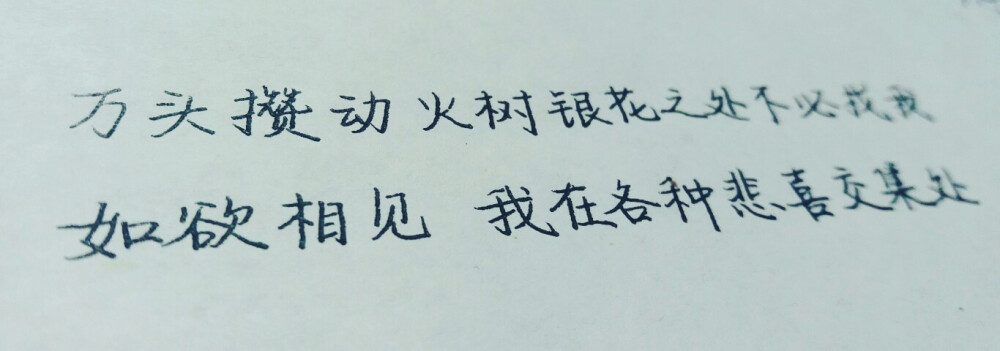 万头攒动火树银花之处不必找我
如欲相见 我在各种悲喜交集处